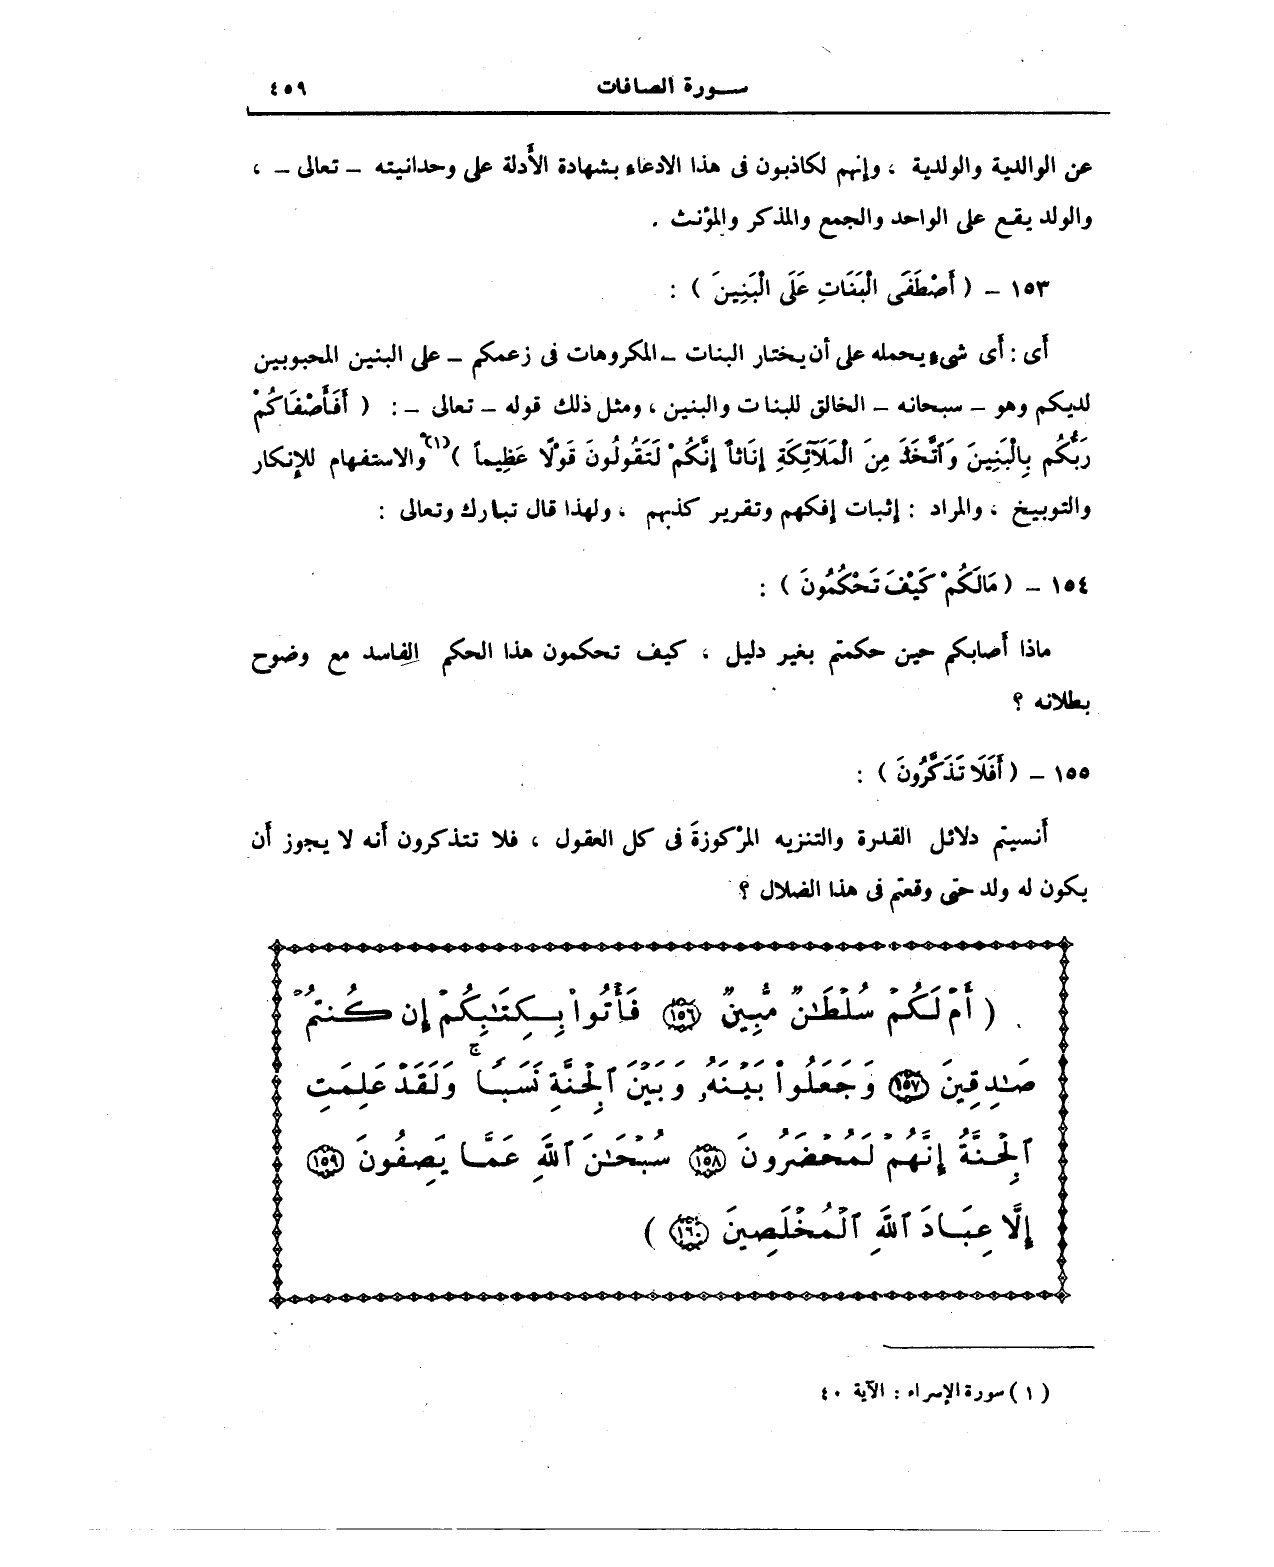 سورة الصافات ٤٥٩
عن الوالدية والولدية ، وإنهم لكاذبون فى هذا الادعاء بشهادة الأدلة على وحدانيته – تعالى – ،
والولد يقع على الواحد والجمع والمذكر والمؤنث .
١٥٣ – ( أَصْطَفَى الْبَنَاتِ عَلَى الْبَنِينَ ) :
أى : أى شىء يحمله على أن يختار البنات – المكروهات فى زعمكم – على البنين المحبوبين
لديكم وهو – سبحانه – الخالق للبنات والبنين ، ومثل ذلك قوله – تعالى – : ( أَفَأَصْفَاكُمْ
رَبُّكُم بِالْبَنِينَ وَاتَّخَذَ مِنَ الْمَلَآئِكَةِ إِنَاثاً إِنَّكُمْ لَتَقُولُونَ قَوْلًا عَظِيماً )(١) والاستفهام للإنكار
والتوبيخ ، والمراد : إثبات إفكهم وتقرير كذبهم ، ولهذا قال تبارك وتعالى :
١٥٤ – ( مَالَكُمْ كَيْفَ تَحْكُمُونَ ) :
ماذا أصابكم حين حكمتم بغير دليل ، كيف تحكمون هذا الحكم الفاسد مع وضوح
بطلانه ؟
١٥٥ – ( أَفَلَا تَذَكَّرُونَ ) :
أنسيتم دلائل القدرة والتنزيه المرْكوزةَ فى كل العقول ، فلا تتذكرون أنه لا يجوز أن
يكون له ولد حتى وقعتم فى هذا الضلال ؟
( أَمْ لَكُمْ سُلْطَٰنٌ مُّبِينٌ ١٥٦ فَأْتُوا۟ بِكِتَٰبِكُمْ إِن كُنتُمْ
صَٰدِقِينَ ١٥٧ وَجَعَلُوا۟ بَيْنَهُۥ وَبَيْنَ ٱلْجِنَّةِ نَسَبًا ۚ وَلَقَدْ عَلِمَتِ
ٱلْجِنَّةُ إِنَّهُمْ لَمُحْضَرُونَ ١٥٨ سُبْحَٰنَ ٱللَّهِ عَمَّا يَصِفُونَ ١٥٩
إِلَّا عِبَادَ ٱللَّهِ ٱلْمُخْلَصِينَ ١٦٠ )
( ١ ) سورة الإسراء : الآية ٤٠